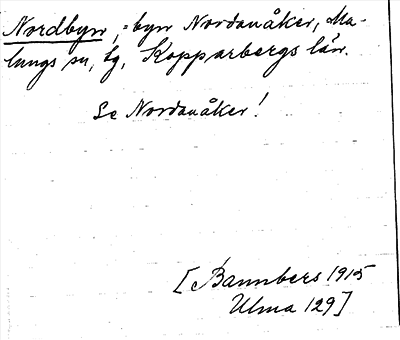 Nordbyn, = byn Nordanåker, Ma-
lungs sn, hg, Kopparbergs län.
Se Nordanåker!
[Bannbers 1915
Ulma 129]